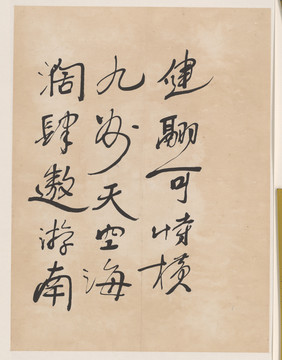 健翮可恃横
九州天空海
阔肆遨游南